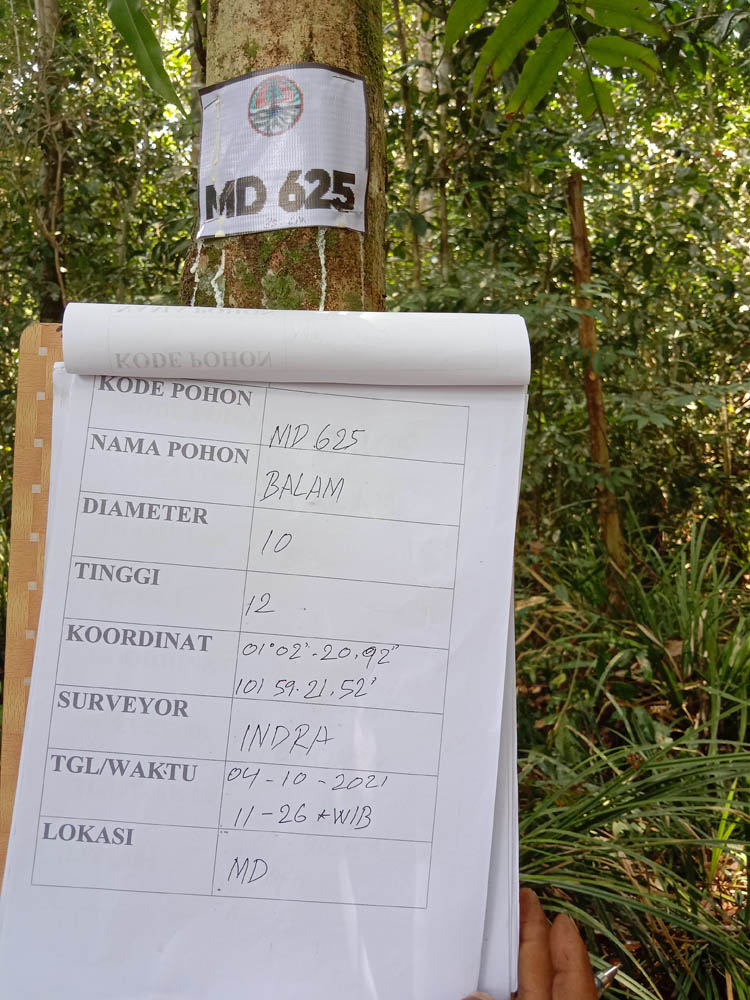 MD 625
KODE POHON
KODE POHON MD 625
NAMA POHON BALAM
DIAMETER 10
TINGGI 12
KOORDINAT 01°02'.20.92"
101 59.21.52'
SURVEYOR INDRA
TGL/WAKTU 04-10-2021
11-26 *WIB
LOKASI MD